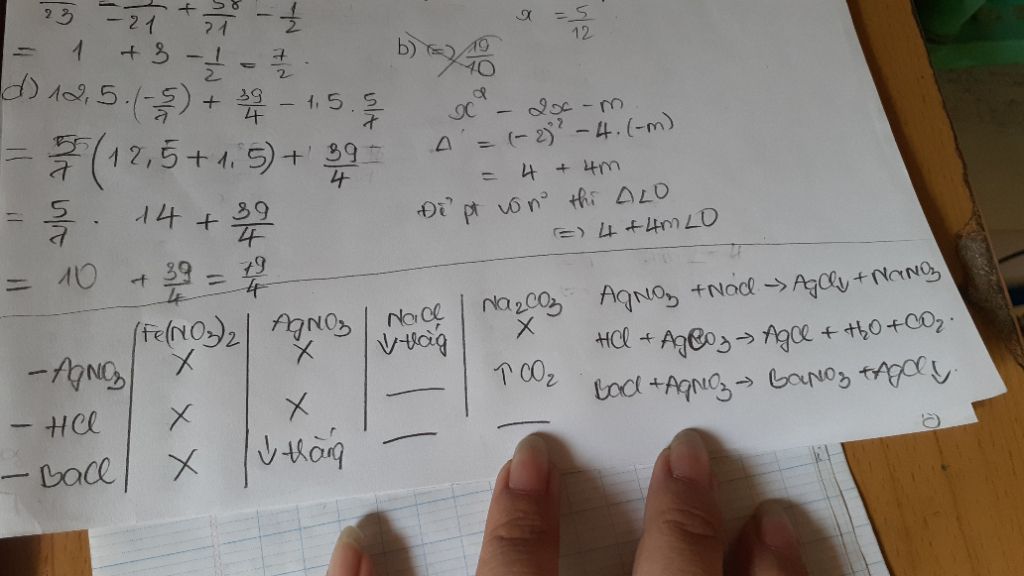 /23 = /-21 + 58/21 - 1/2
= 1 + 3 - 1/2 = 7/2
d) 12,5.(-5/7) + 39/4 - 1,5 . 5/7
= 5/7 (12,5 + 1,5) + 39/4
= 5/7 . 14 + 39/4
= 10 + 39/4 = 79/4
x = 5/12
b) (=) 19/10
x² - 2x - m
Δ = (-2)² - 4.(-m)
= 4 + 4m
Để pt vô nº thì Δ<0
(=) 4 + 4m<0
Fe(NO3)2 | AgNO3 | NaCl | Na2CO3
- AgNO3 | X | X | ↓ trắng | X
- HCl | X | X | — | ↑ CO2
- BaCl | X | ↓ trắng | — | —
AgNO3 + NaCl → AgCl↓ + NaNO3
HCl + AgCO3 → AgCl + H2O + CO2.
BaCl + AgNO3 → BaNO3 + AgCl↓.